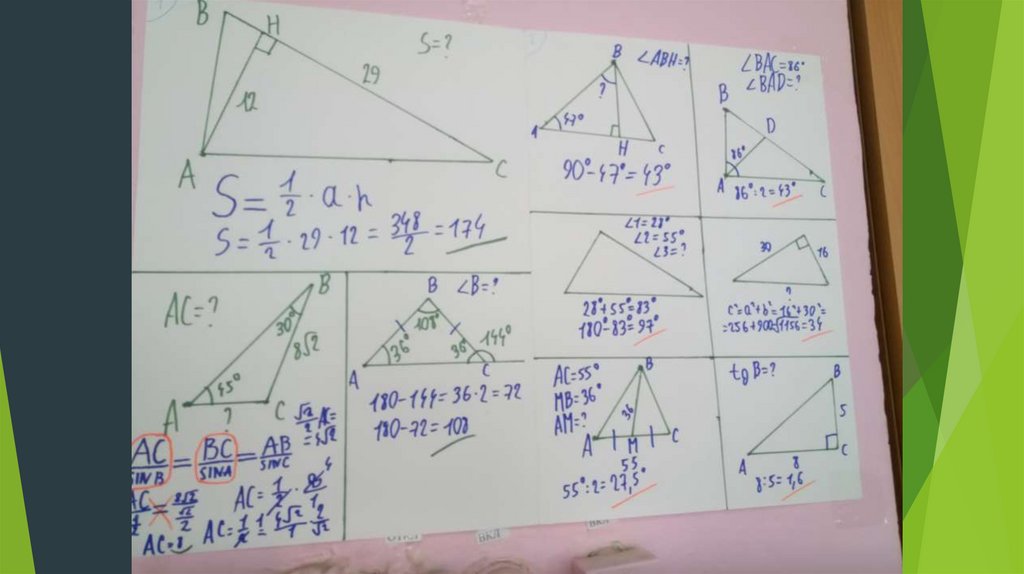 1
B
H
S=?
29
12
A
C
S=1/2·a·h
S=1/2·29·12=348/2=174
B
∠ABH=?
?
47°
A
H
C
90°-47°=43°
∠BAC=86°
∠BAD=?
B
D
86°
A
C
86°:2=43°
∠1=28°
∠2=55°
∠3=?
28°+55°=83°
180°-83°=97°
30
16
?
c²=a²+b²=16²+30²=
=256+900=√1156=34
AC=?
B
30°
8√2
45°
A
?
C
AC/SIN B=BC/SIN A=AB/SIN C
AC=8
B
∠B=?
108°
36°
36°
144°
A
C
180-144=36·2=72
180-72=108
AC=55°
MB=36°
AM=?
B
36
A
M
C
55
55°:2=27,5°
tg B=?
B
5
A
8
C
8:5=1,6
ОТКЛ
ВКЛ
ВКЛ